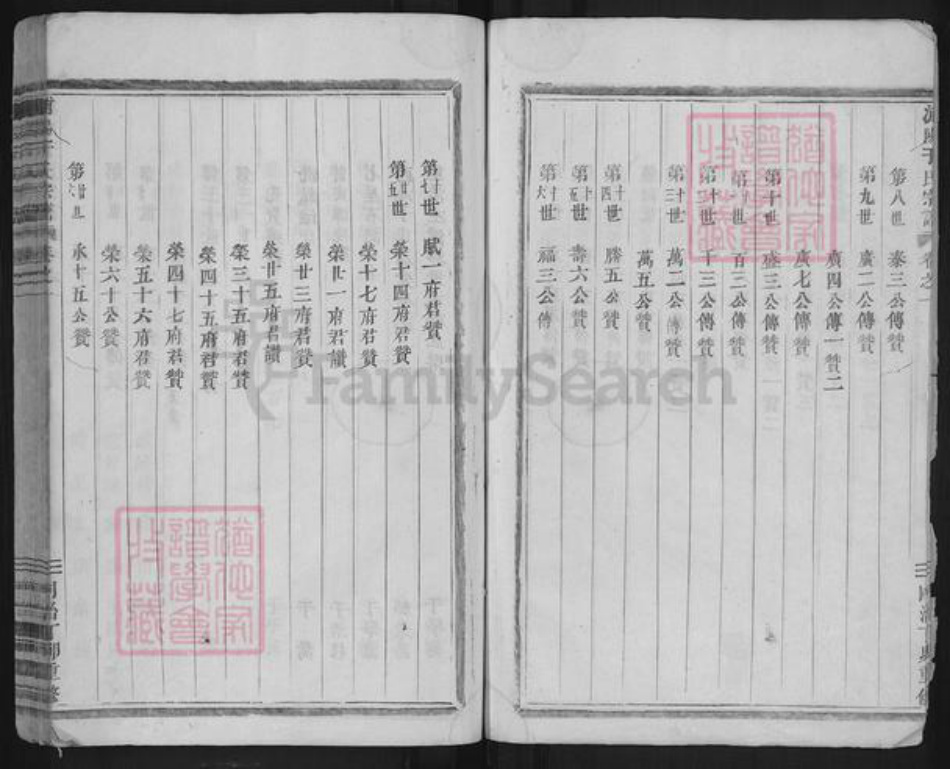 第八世 泰三公傳贊
第九世 廣二公傳贊
廣四公傳一贊二
廣七公傳贊
第十世 盛三公傳贊
百三公傳贊
十三公傳贊
第十三世 萬二公傳贊
萬五公贊
第十四世 勝五公贊
第十五世 壽六公贊
第十六世 福三公傳
第十七世 賦一府君贊
榮十四府君贊
榮十七府君贊
榮廿一府君讚
榮廿三府君贊
榮廿五府君讚
榮三十五府君贊
榮四十五府君贊
榮四十七府君贊
榮五十六府君贊
榮六十公贊
永十五公贊
猶他家譜學會收藏
猶他家譜學會收藏
FamilySearch